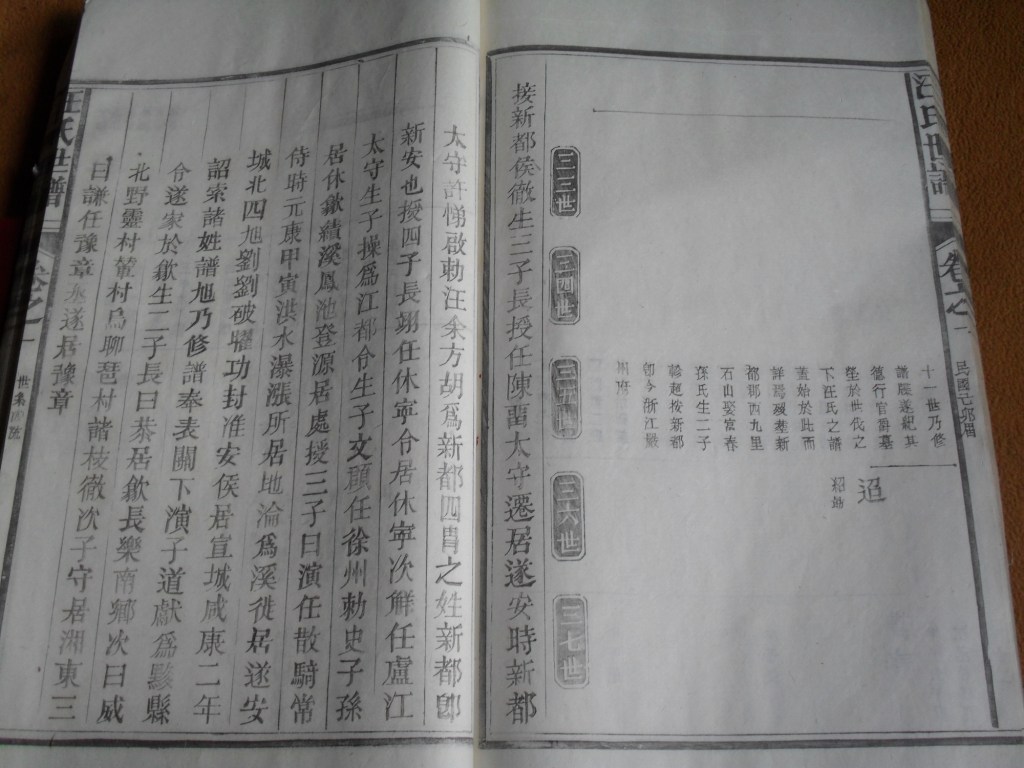 汪氏世譜
卷之一
十一世乃修
譜牒遂紀其
德行官爵墓
塋於世代之
下汪氏之譜
葢始於此而
詳焉歿塟新
都郡西九里
石山娶富春
孫氏生二子
紹 迨
三三世
三四世
三五世
三六世
三七世
接新都侯徹生三子長授任陳畱太守遷居遂安時新都
太守許悌啟勅汪余方胡爲新都四胄之姓新都卽
新安也授四子長翊任休寧令居休寧次鮮任盧江
太守生子操爲江都令生子文頭任徐州勅史子孫
居休歙績溪鳳池登源居處授三子曰演任散騎常
侍時元康甲寅洪水瀑漲所居地淪爲溪徙居遂安
城北四旭劉劉破㬇功封淮安侯居宣城咸康二年
詔索諸姓譜旭乃修譜奉表闕下演子道獻爲黟縣
令遂家於歙生二子長曰恭居歙長樂南鄉次曰威
北野靈村葷村烏聊琶村諸枝徹次子守居湘東三
曰謙任豫章太遂居豫章
汪氏世譜
卷之一